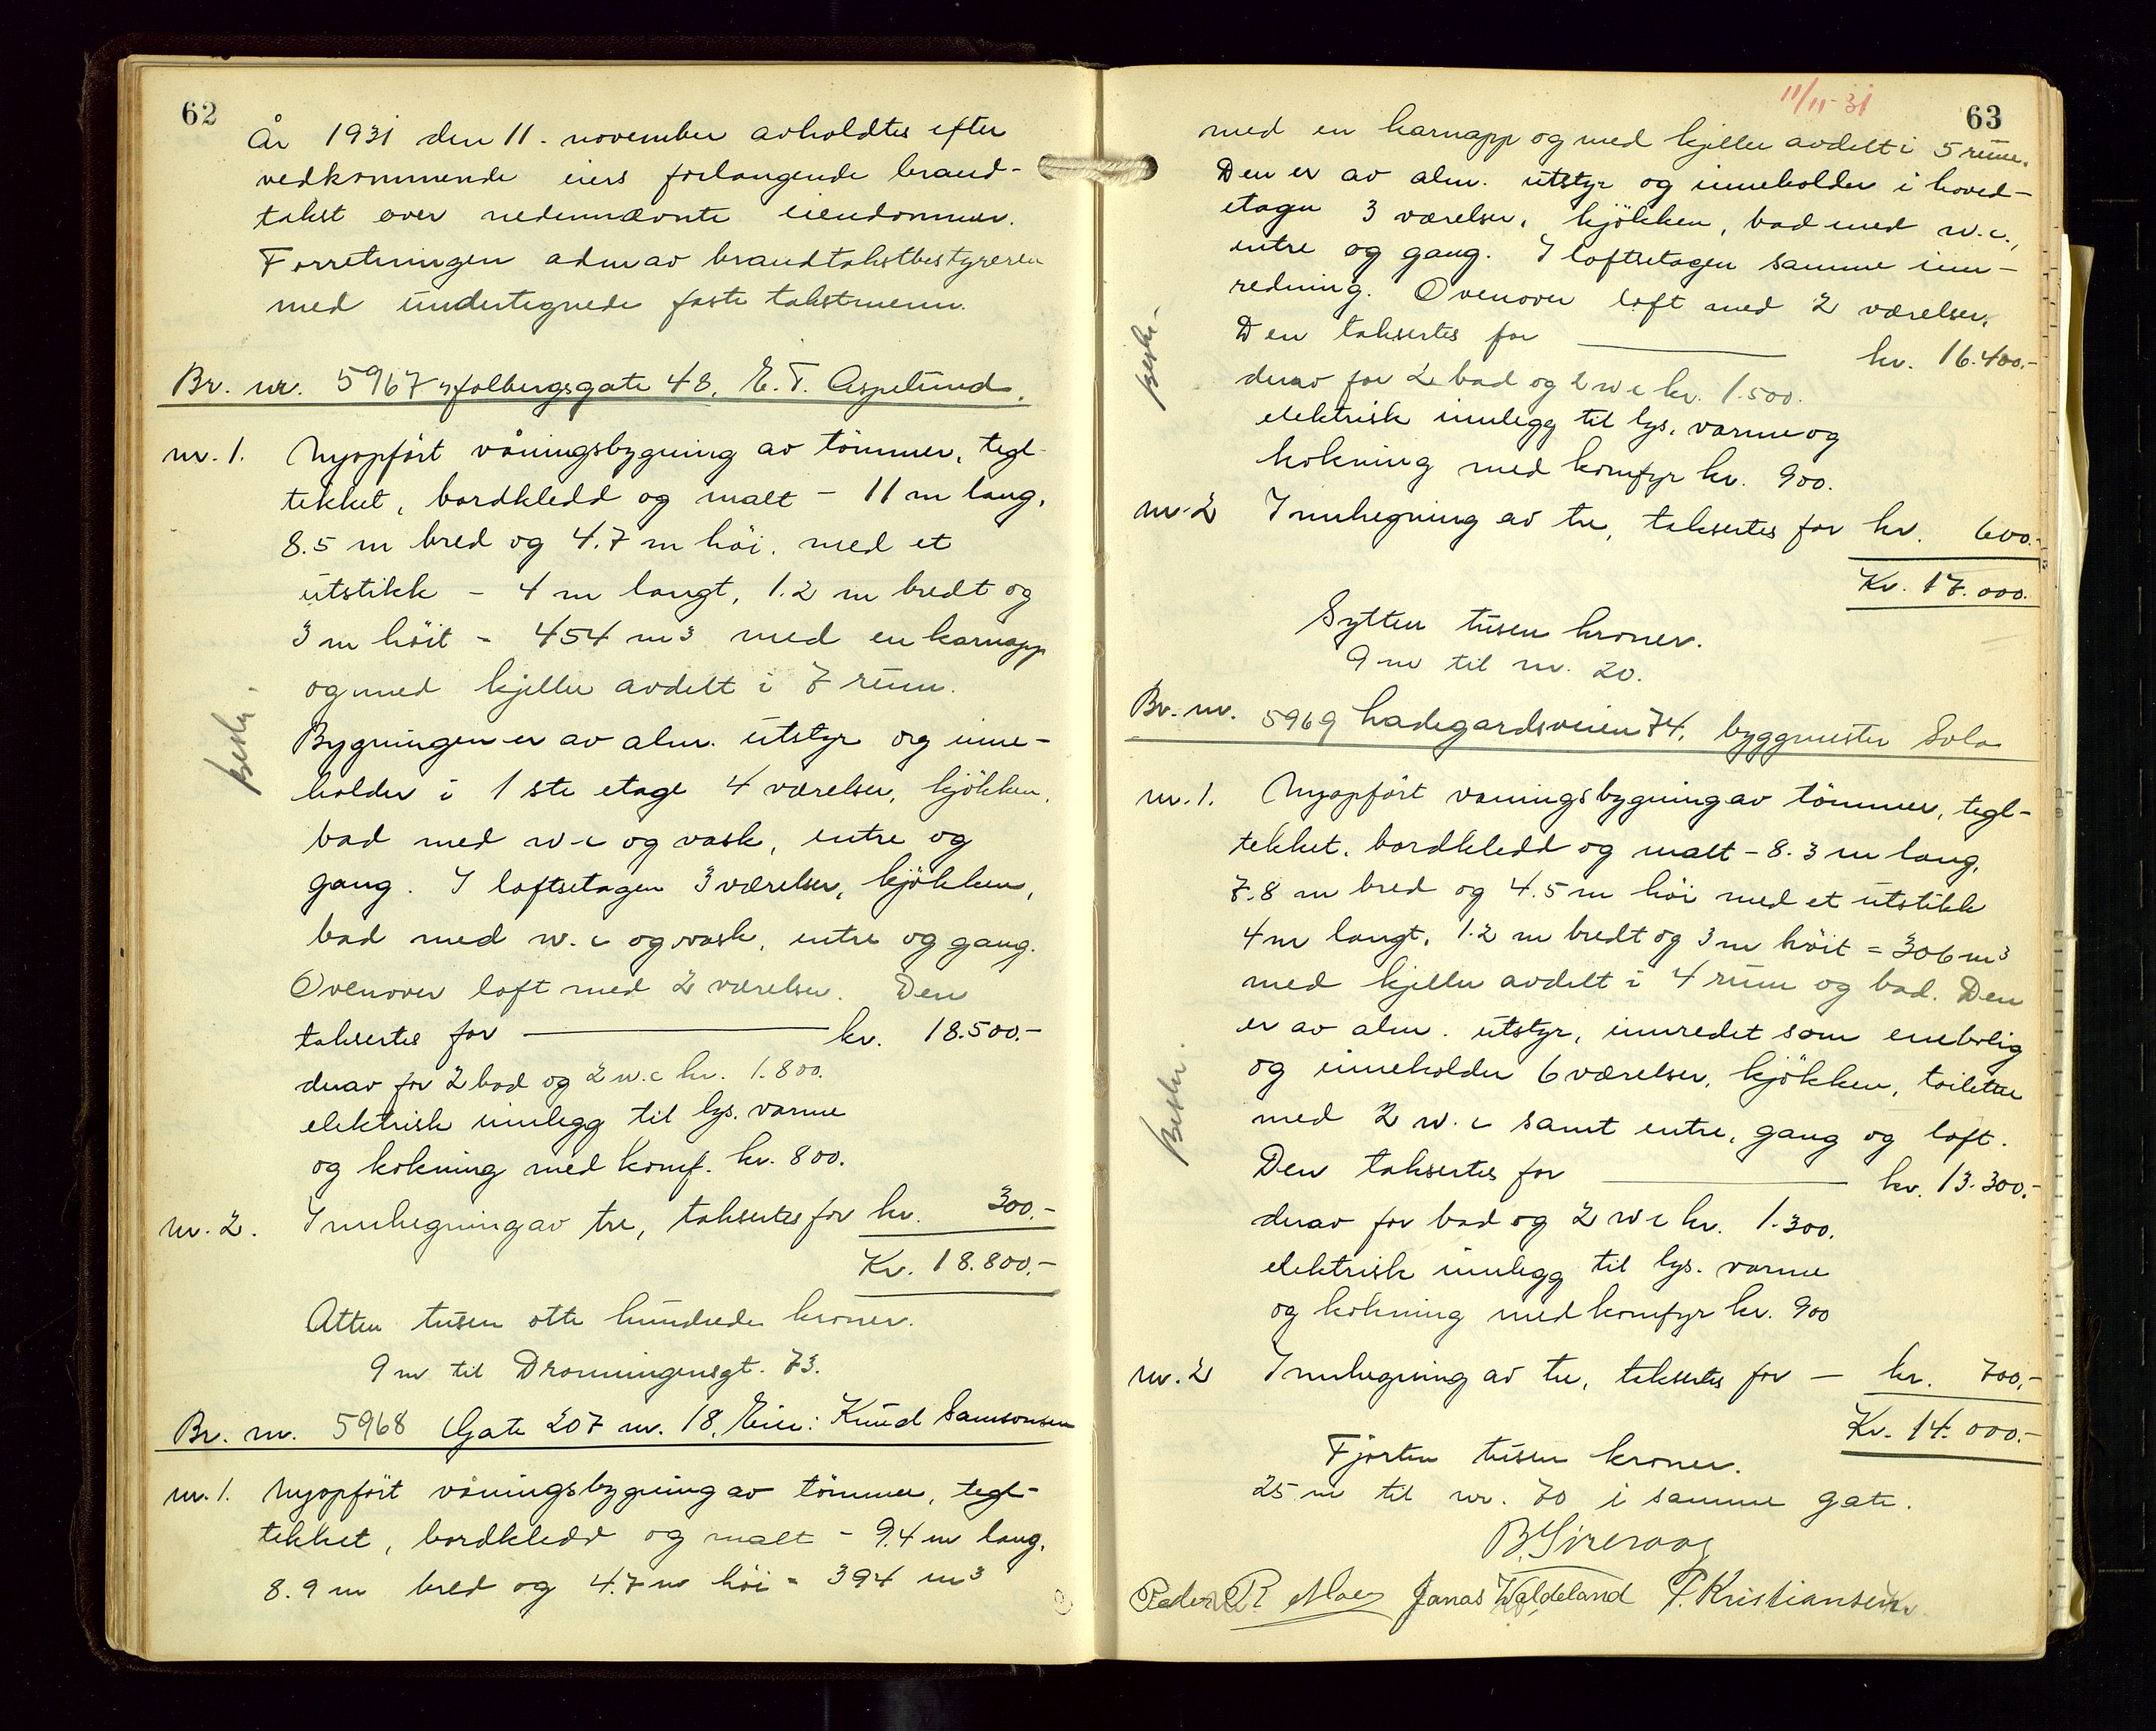 62
År 1931 den 11. november avholdtes efter
vedkommende eiers forlangende brand-
takst over nedennævnte eiendommer.
Forretningen adm av brandtakstbestyreren
med undertegnede faste takstmenn.
Br. nr. 5967 Holbergsgate 48, E. T. Aspelund.
nr. 1. Nyopført våningsbygning av tömmer, tegl-
tekket, bordkledd og malt - 11 m lang,
8.5 m bred og 4.7 m höi, med et
utstikk - 4 m langt, 1.2 m bredt og
3 m höit = 454 m³ med en karnapp
og med kjeller avdelt i 7 rum.
Bygningen er av alm. utstyr og inne-
holder i 1ste etage 4 værelser, kjökken,
bad med w.c og vask, entre og
gang. I loftsetagen 3 værelser, kjökken,
bad med w.c og vask, entre og gang.
Ovenover loft med 2 værelser. Den
taksertes for kr. 18.500.-
derav for 2 bad og 2 w.c kr. 1.800.
elektrisk innlegg til lys, varme
og kokning med komf. kr. 800.
nr. 2. Innhegning av tre, taksertes for kr. 300.-
Kr. 18.800.-
Atten tusen otte hundrede kroner.
9 m til Dronningensgt. 73.
Br. nr. 5968 Gate 207 nr. 18, Eier: Knud Samsonsen
nr. 1. Nyopfört våningsbygning av tömmer, tegl-
tekket, bordkledd og malt - 9.4 m lang,
8.9 m bred og 4.7 m höi = 394 m³
11/11-31
63
med en karnapp og med kjeller avdelt i 5 rum.
Den er av alm. utstyr og inneholder i hoved-
etagen 3 værelser, kjökken, bad med w.c.,
entre og gang. I loftsetagen samme inn-
redning. Ovenover loft med 2 værelser.
Den taksertes for kr. 16.400.-
derav for 2 bad og 2 w c kr. 1.500.
elektrisk innlegg til lys, varme og
kokning med komfyr kr. 900.
nr. 2 Innhegning av tre, taksertes for kr. 600.-
Kr. 17.000.
Sytten tusen kroner.
9 m til nr. 20.
Br. nr. 5969 Ladegardsveien 74, byggmester Sola
nr. 1. Nyopfört våningsbygning av tömmer, tegl-
tekket, bordkledd og malt - 8.3 m lang,
7.8 m bred og 4.5 m höi med et utstikk
4 m langt, 1.2 m bredt og 3 m höit = 306 m³
med kjeller avdelt i 4 rum og bad. Den
er av alm. utstyr, innredet som enebolig
og inneholder 6 værelser, kjökken, toiletter
med 2 w.c samt entre, gang og loft.
Den taksertes for kr. 13.300.-
derav for bad og 2 w c kr. 1.300.
elektrisk innlegg til lys, varme
og kokning med komfyr kr. 900
nr. 2 Innhegning av tre, taksertes for - kr. 700.-
Kr. 14.000.-
Fjorten tusen kroner.
25 m til nr. 70 i samme gate.
B. Sirevaag
Peder R Moe Jonas Waldeland P. Kristiansen